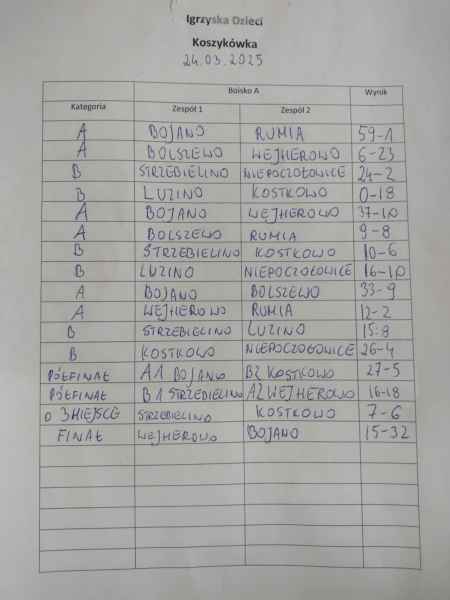 Igrzyska Dzieci
Koszykówka
24.03.2025
Boisko A Wynik
Kategoria Zespół 1 Zespół 2
A BOJANO RUMIA 59-1
A BOLSZEWO WEJHEROWO 6-23
B STRZEBIELINO NIEPOCZOŁOWICE 24-2
B LUZINO KOSTKOWO 0-18
A BOJANO WEJHEROWO 37-10
A BOLSZEWO RUMIA 9-8
B STRZEBIELINO KOSTKOWO 10-6
B LUZINO NIEPOCZOŁOWICE 16-10
A BOJANO BOLSZEWO 33-9
A WEJHEROWO RUMIA 12-2
B STRZEBIELINO LUZINO 15-8
B KOSTKOWO NIEPOCZOŁOWICE 26-4
PÓŁFINAŁ A1 BOJANO B2 KOSTKOWO 27-5
PÓŁFINAŁ B1 STRZEBIELINO A2 WEJHEROWO 16-18
O 3 MIEJSCE STRZEBIELINO KOSTKOWO 7-6
FINAŁ WEJHEROWO BOJANO 15-32